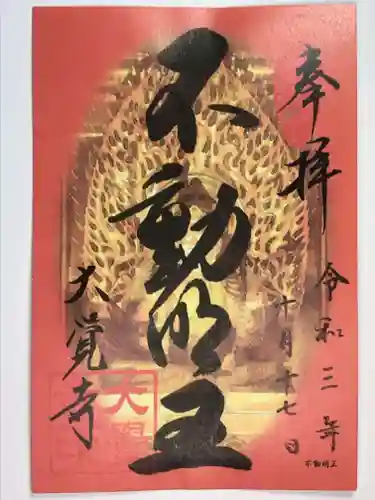 奉拝
令和三年
十月十七日
不動明王
不動明王
大覚寺